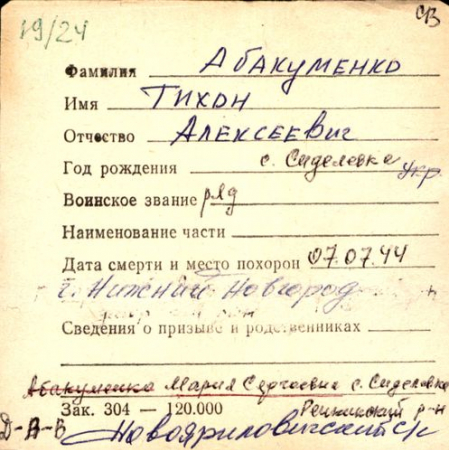 19/24
СВ
Фамилия Абакуменко
Имя Тихон
Отчество Алексеевич
Год рождения с. Сиделевка Укр.
Воинское звание ряд
Наименование части
Дата смерти и место похорон 07.07.44
г. Нижний Новгород
Сведения о призыве и родственниках
Абакуменко Мария Сергеевна с. Сиделевка
Зак. 304 — 120.000 Репкинский р-н
Д-В-В Новояриловичский с/с